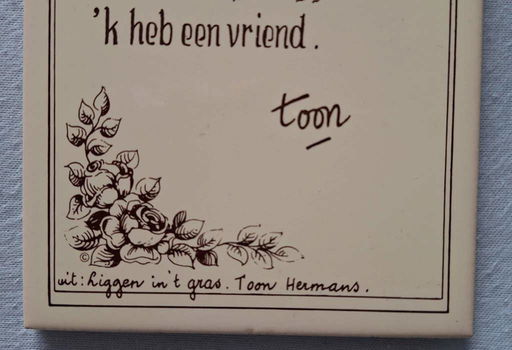 'k heb een vriend.
toon
©
uit: liggen in 't gras. Toon Hermans.